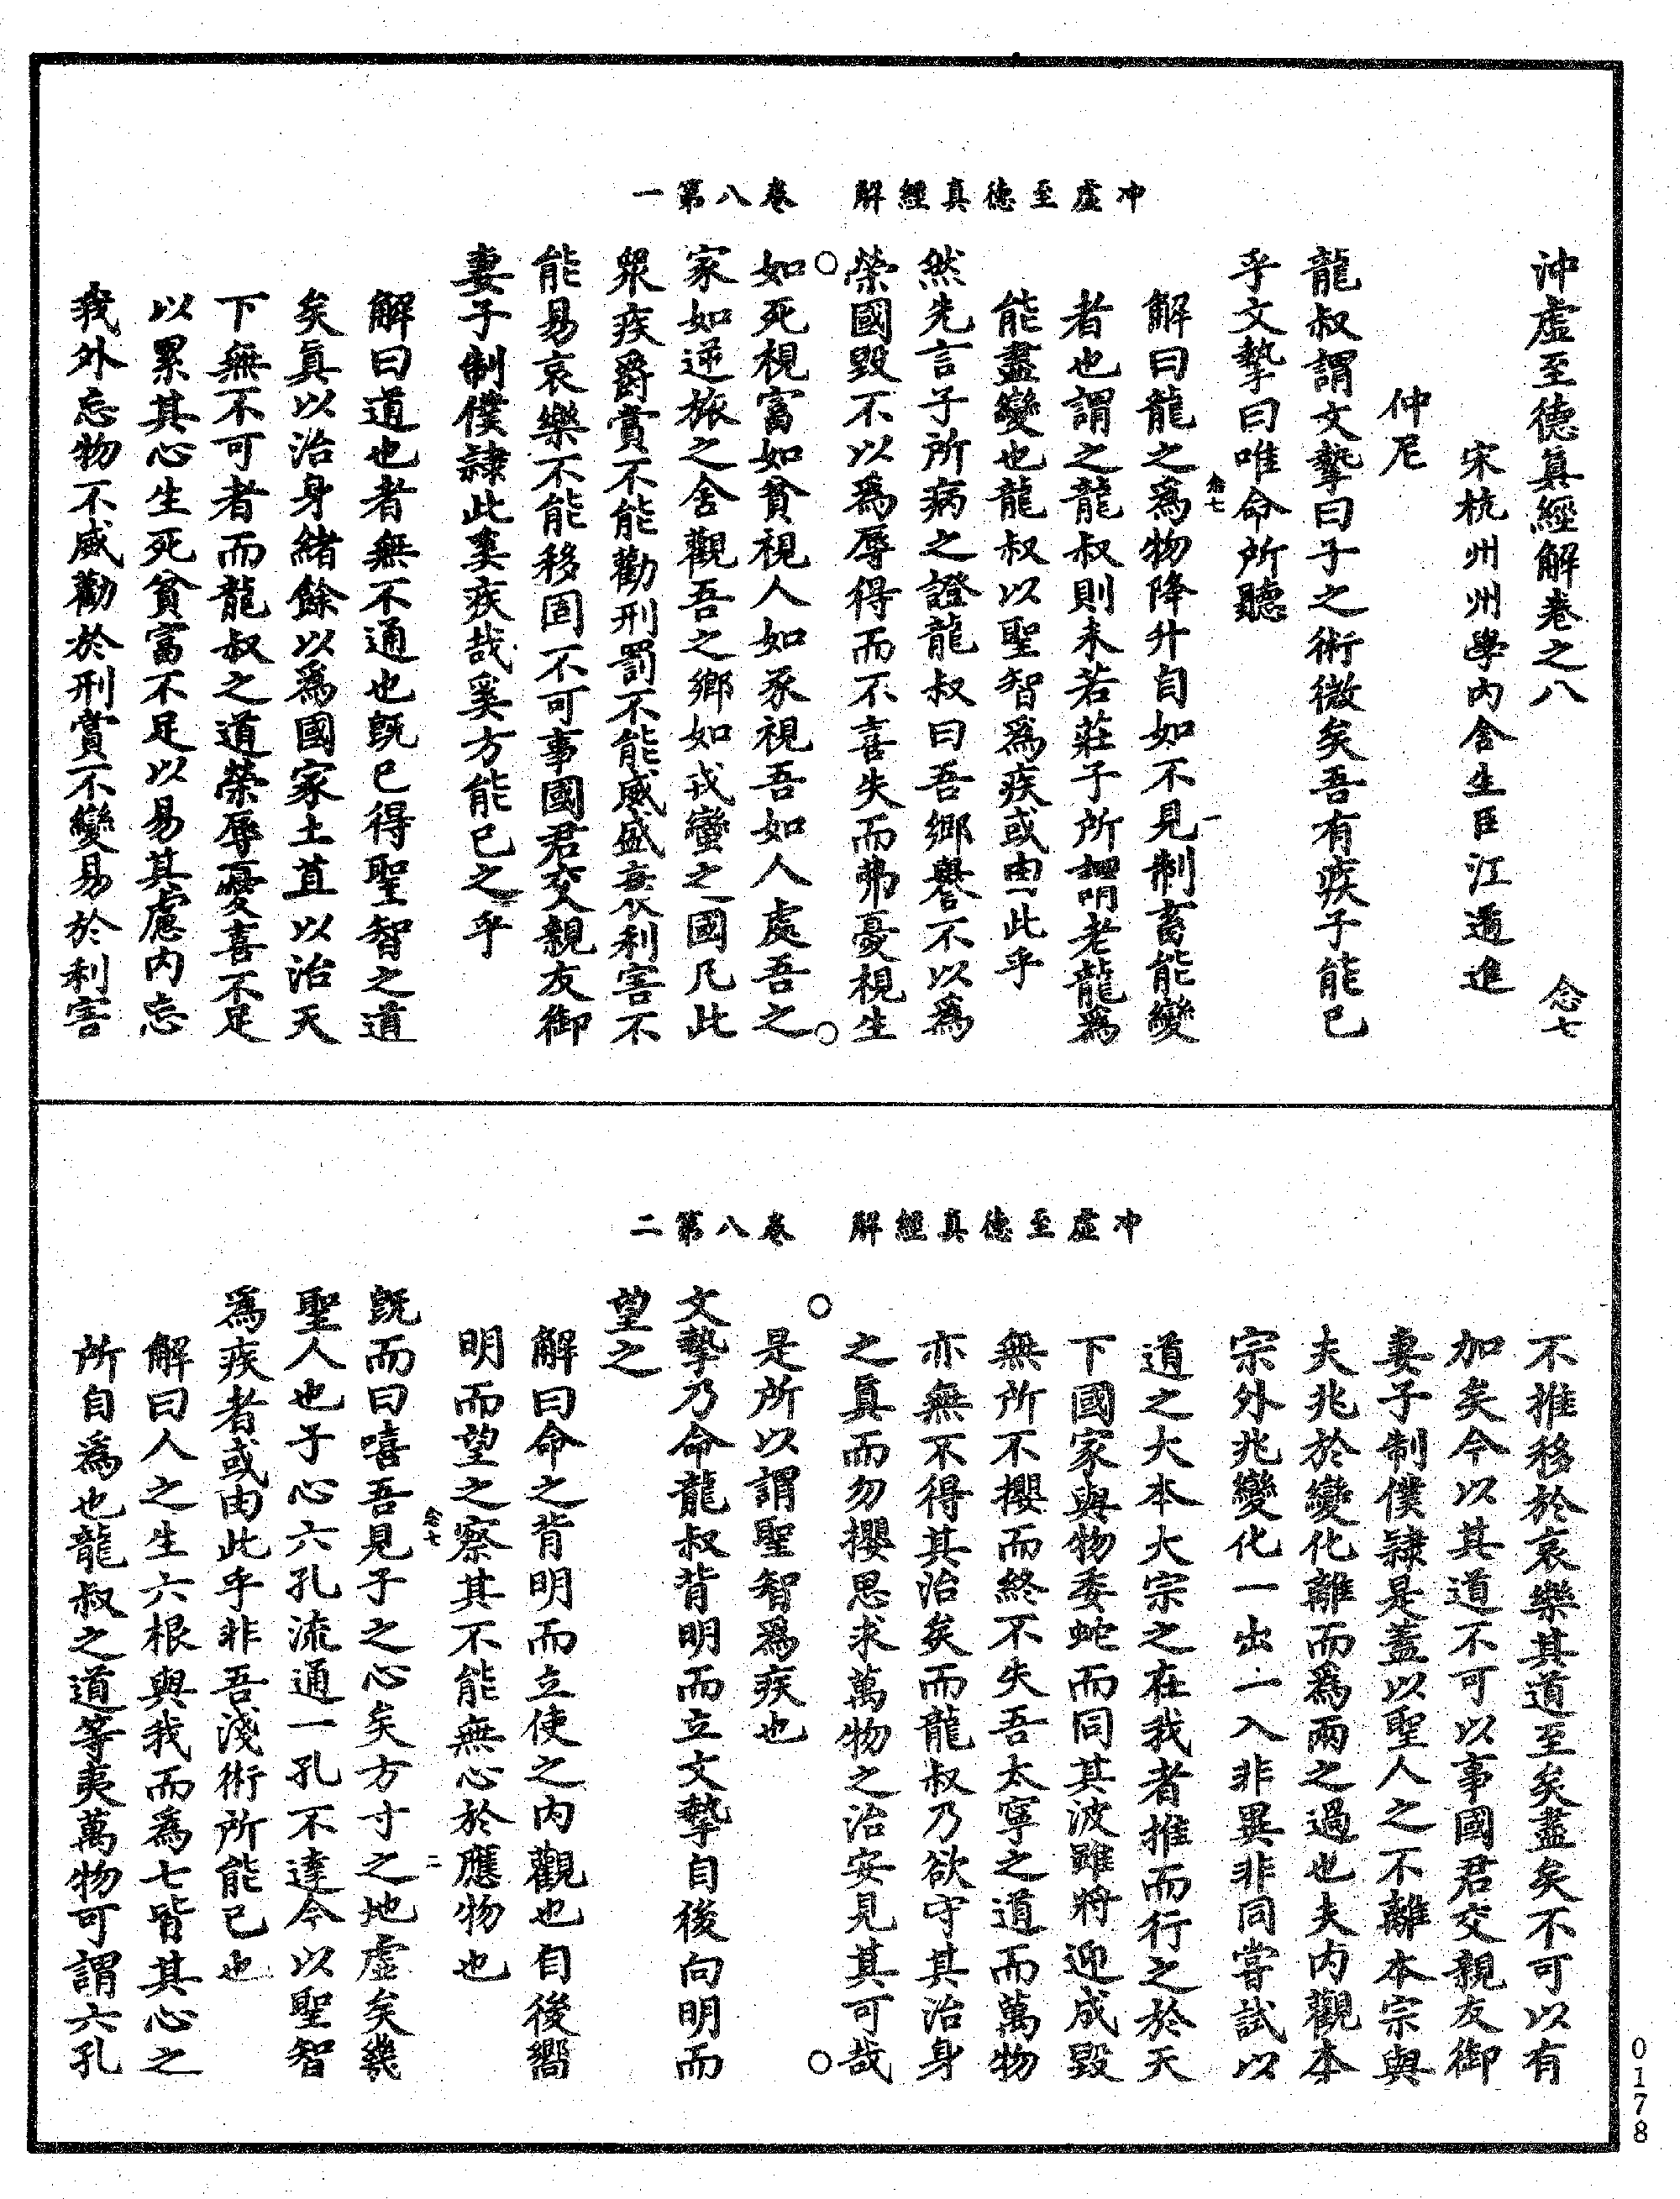 冲虛至德真經解　卷八第一
沖虛至德真經解卷之八　念七
宋杭州州學內舍生臣江遹進
仲尼
龍叔謂文摯曰子之術微矣吾有疾子能已
乎文摯曰唯命所聽
念七　一
解曰龍之爲物降升自如不見制畜能變
者也謂之龍叔則未若莊子所謂老龍爲
能盡變也龍叔以聖智爲疾或由此乎
然先言子所病之證龍叔曰吾鄉譽不以爲
榮國毀不以爲辱得而不喜失而弗憂視生
如死視富如貧視人如豕視吾如人處吾之
家如逆旅之舍觀吾之鄉如戎蠻之國凡此
衆疾爵賞不能勸刑罰不能威盛衰利害不
能易哀樂不能移固不可事國君交親友御
妻子制僕隷此奚疾哉奚方能已之乎
解曰道也者無不通也旣已得聖智之道
矣眞以治身緒餘以爲國家土苴以治天
下無不可者而龍叔之道榮辱憂喜不足
以累其心生死貧富不足以易其慮內忘
我外忘物不威勸於刑賞不變易於利害
冲虛至德真經解　卷八第二
不推移於哀樂其道至矣盡矣不可以有
加矣今以其道不可以事國君交親友御
妻子制僕隷是蓋以聖人之不離本宗與
夫兆於變化離而爲兩之過也夫內觀本
宗外兆變化一出一入非異非同嘗試以
道之大本大宗之在我者推而行之於天
下國家與物委蛇而同其波雖將迎成毀
無所不攖而終不失吾太寧之道而萬物
亦無不得其治矣而龍叔乃欲守其治身
之眞而勿攖思求萬物之治安見其可哉
是所以謂聖智爲疾也
文摯乃命龍叔背明而立文摯自後向明而
望之
解曰命之背明而立使之內觀也自後嚮
明而望之察其不能無心於應物也
念七　二
旣而曰嘻吾見子之心矣方寸之地虛矣幾
聖人也子心六孔流通一孔不達今以聖智
爲疾者或由此乎非吾淺術所能已也
解曰人之生六根與我而爲七皆其心之
所自爲也龍叔之道等夷萬物可謂六孔
0178